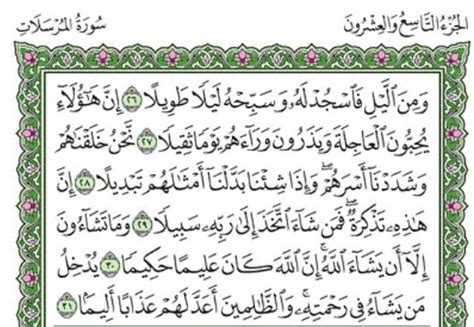 الجزء التاسع والعشرون
سورة المرسلات
وَمِنَ الَّيْلِ فَاسْجُدْ لَهُ وَسَبِّحْهُ لَيْلًا طَوِيلًا ٢٦ إِنَّ هَٰؤُلَاءِ
يُحِبُّونَ الْعَاجِلَةَ وَيَذَرُونَ وَرَاءَهُمْ يَوْمًا ثَقِيلًا ٢٧ نَّحْنُ خَلَقْنَاهُمْ
وَشَدَدْنَا أَسْرَهُمْ ۖ وَإِذَا شِئْنَا بَدَّلْنَا أَمْثَالَهُمْ تَبْدِيلًا ٢٨ إِنَّ
هَٰذِهِ تَذْكِرَةٌ ۖ فَمَن شَاءَ اتَّخَذَ إِلَىٰ رَبِّهِ سَبِيلًا ٢٩ وَمَا تَشَاءُونَ
إِلَّا أَن يَشَاءَ اللَّهُ ۚ إِنَّ اللَّهَ كَانَ عَلِيمًا حَكِيمًا ٣٠ يُدْخِلُ
مَن يَشَاءُ فِي رَحْمَتِهِ ۚ وَالظَّالِمِينَ أَعَدَّ لَهُمْ عَذَابًا أَلِيمًا ٣١